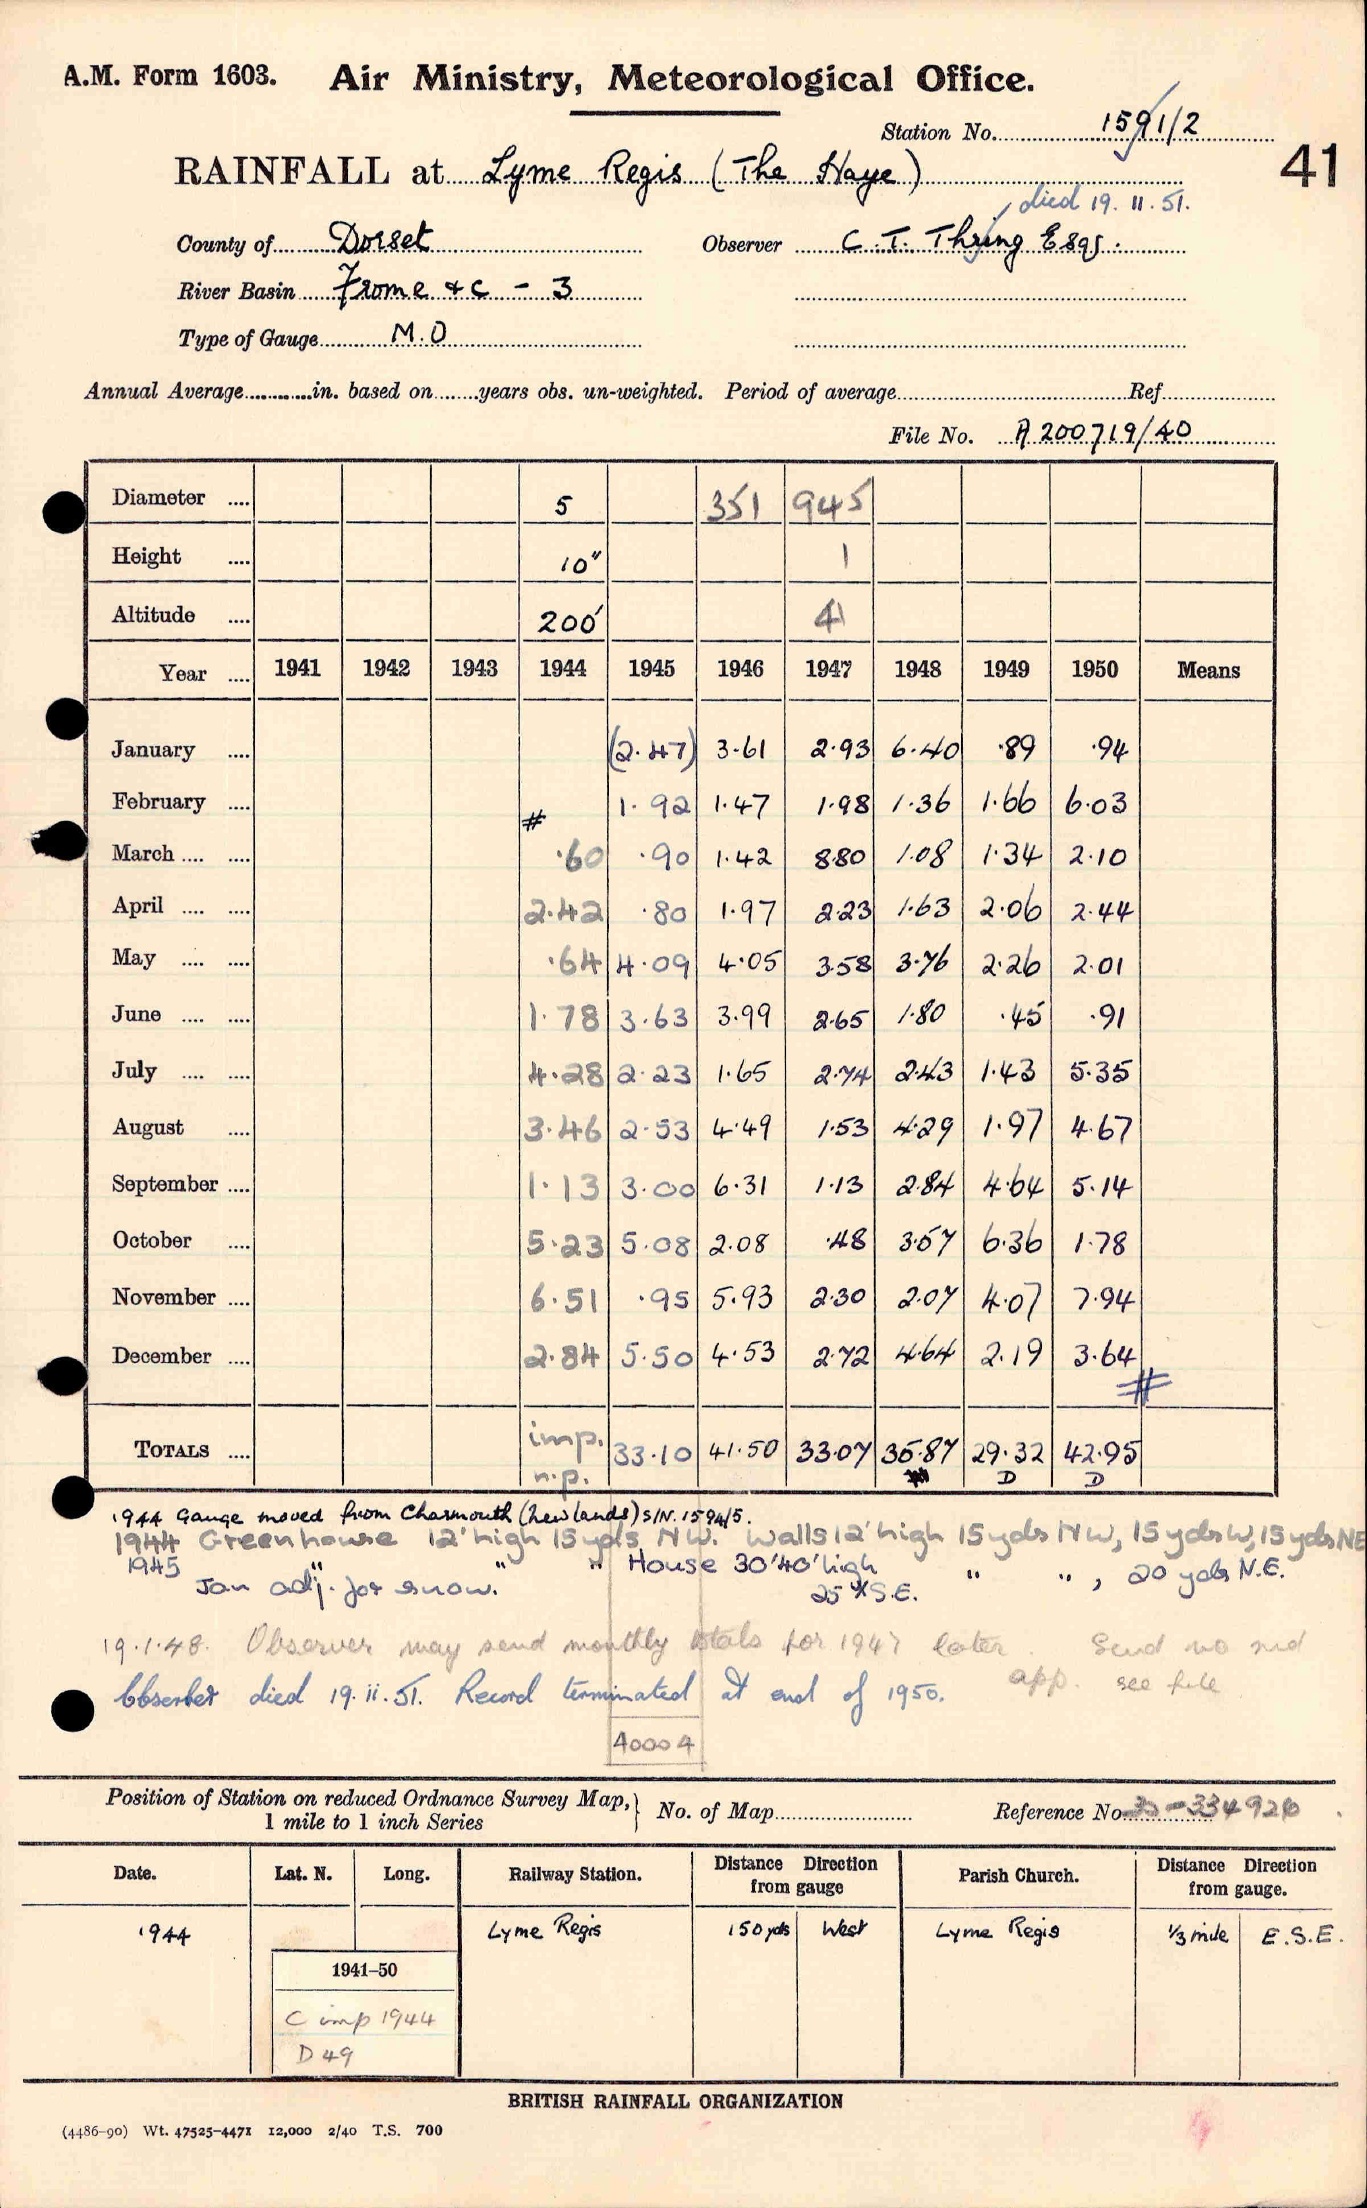 A.M. Form 1603. Air Ministry, Meteorological Office.
Station No. 1591/2
41
RAINFALL at Lyme Regis (The Haye)
died 19.11.51.
County of Dorset Observer C. T. Thring Esqr.
River Basin Frome &c - 3
Type of Gauge M.O
Annual Average in. based on years obs. un-weighted. Period of average Ref
File No. A200719/40
Diameter .... 5 351 945
Height .... 10" 1
Altitude .... 200' 41
Year .... 1941 1942 1943 1944 1945 1946 1947 1948 1949 1950 Means
January .... (2.47) 3.61 2.93 6.40 .89 .94
February .... # 1.92 1.47 1.98 1.36 1.66 6.03
March .... .... .60 .90 1.42 8.80 1.08 1.34 2.10
April .... .... 2.42 .80 1.97 2.23 1.63 2.06 2.44
May .... .... .64 4.09 4.05 3.58 3.76 2.26 2.01
June .... .... 1.78 3.63 3.99 2.65 1.80 .45 .91
July .... .... 4.28 2.23 1.65 2.74 2.43 1.43 5.35
August .... 3.46 2.53 4.49 1.53 4.29 1.97 4.67
September .... 1.13 3.00 6.31 1.13 2.84 4.64 5.14
October .... 5.23 5.08 2.08 .48 3.57 6.36 1.78
November .... 6.51 .95 5.93 2.30 2.07 4.07 7.94
December .... 2.84 5.50 4.53 2.72 4.64 2.19 3.64
#
TOTALS .... imp. 33.10 41.50 33.07 35.87 29.32 42.95
n.p. D D
1944 Gauge moved from Charmouth (Newlands) S/N. 1594/5.
1944 Greenhouse 12' high 15 yds NW. Walls 12' high 15 yds NW, 15 yds W, 15 yds NE
1945 " " " House 30'40' high " " , 20 yds N.E.
Jan adj. for snow. 25 S.E.
19.1.48. Observer may send monthly totals for 1947 later. Send no
app. see file
Observer died 19.ii.51. Record terminated at end of 1950.
40004
Position of Station on reduced Ordnance Survey Map, 1 mile to 1 inch Series } No. of Map Reference No. 334926
Date. Lat. N. Long. Railway Station. Distance Direction from gauge Parish Church. Distance Direction from gauge.
1944 Lyme Regis 150 yds West Lyme Regis 1/3 mile E.S.E.
1941-50
C imp 1944
D 49
BRITISH RAINFALL ORGANIZATION
(4486-90) Wt. 47525-4471 12,000 2/40 T.S. 700